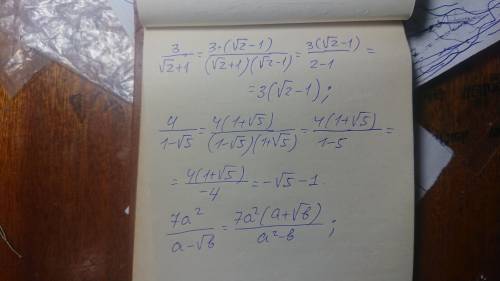 3/(√2+1) = 3·(√2-1)/((√2+1)(√2-1)) = 3(√2-1)/(2-1) =
= 3(√2-1);
4/(1-√5) = 4(1+√5)/((1-√5)(1+√5)) = 4(1+√5)/(1-5) =
= 4(1+√5)/(-4) = -√5-1.
7a²/(a-√b) = 7a²(a+√b)/(a²-b);